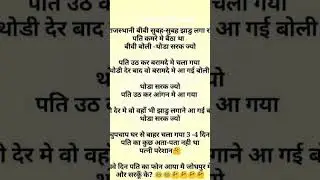 ाजस्थानी बीबी सुबह-सुबह झाडु लगा र
पति कमरे मे बैठा था
बीबी बोली -थोडा सरक ज्यो
पति उठ कर बरामदे मे चला गया
थोडी देर बाद वो बरामदे मे आ गई बोली
थोडा सरक ज्यो
पति उठ कर आंगन मे आ गया
देर मे वो वहाँ भी झाडु लगाने आ गई ब
थोडा सरक ज्यो
चुपचाप घर से बाहर चला गया 3 -4 दिन
पति का कुछ अता-पता नही था
पत्नी परेशान🤔
वे दिन पति का फोन आया मै जोधपुर मे
और सरकूँ के? 😂😂🤔🤔🤔🤔